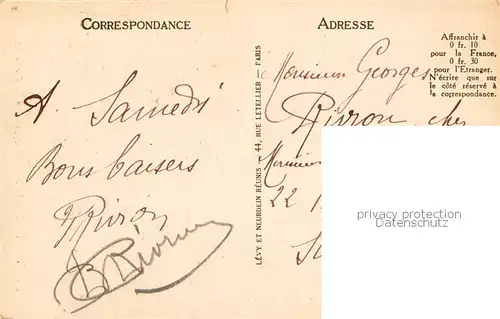 CORRESPONDANCE
A Samedi
Bons baisers
Rivron
LÉVY ET NEURDEIN RÉUNIS — 44, RUE LETELLIER — PARIS
ADRESSE
Affranchir à
0 fr. 10
pour la France,
0 fr. 30
pour l'Etranger.
N'écrire que sur
le côté réservé à
la correspondance.
Monsieur Georges
Rivron chez
Monsieur
22
privacy protection
Datenschutz